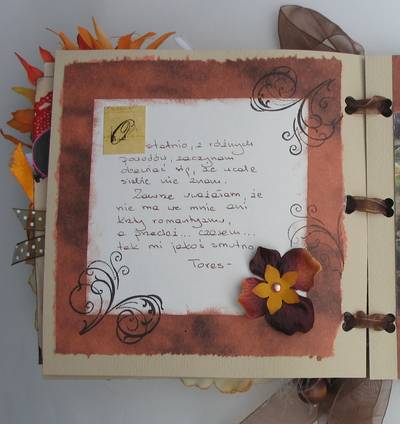 Ostatnio, z różnych
powodów, zaczynam
obawiać się, że wcale
siebie nie znam.
Zawsze uważałam, że
nie ma we mnie ani
krzty romantyzmu,
a przecież... czasem...
tak mi jakoś smutno.
Tores-